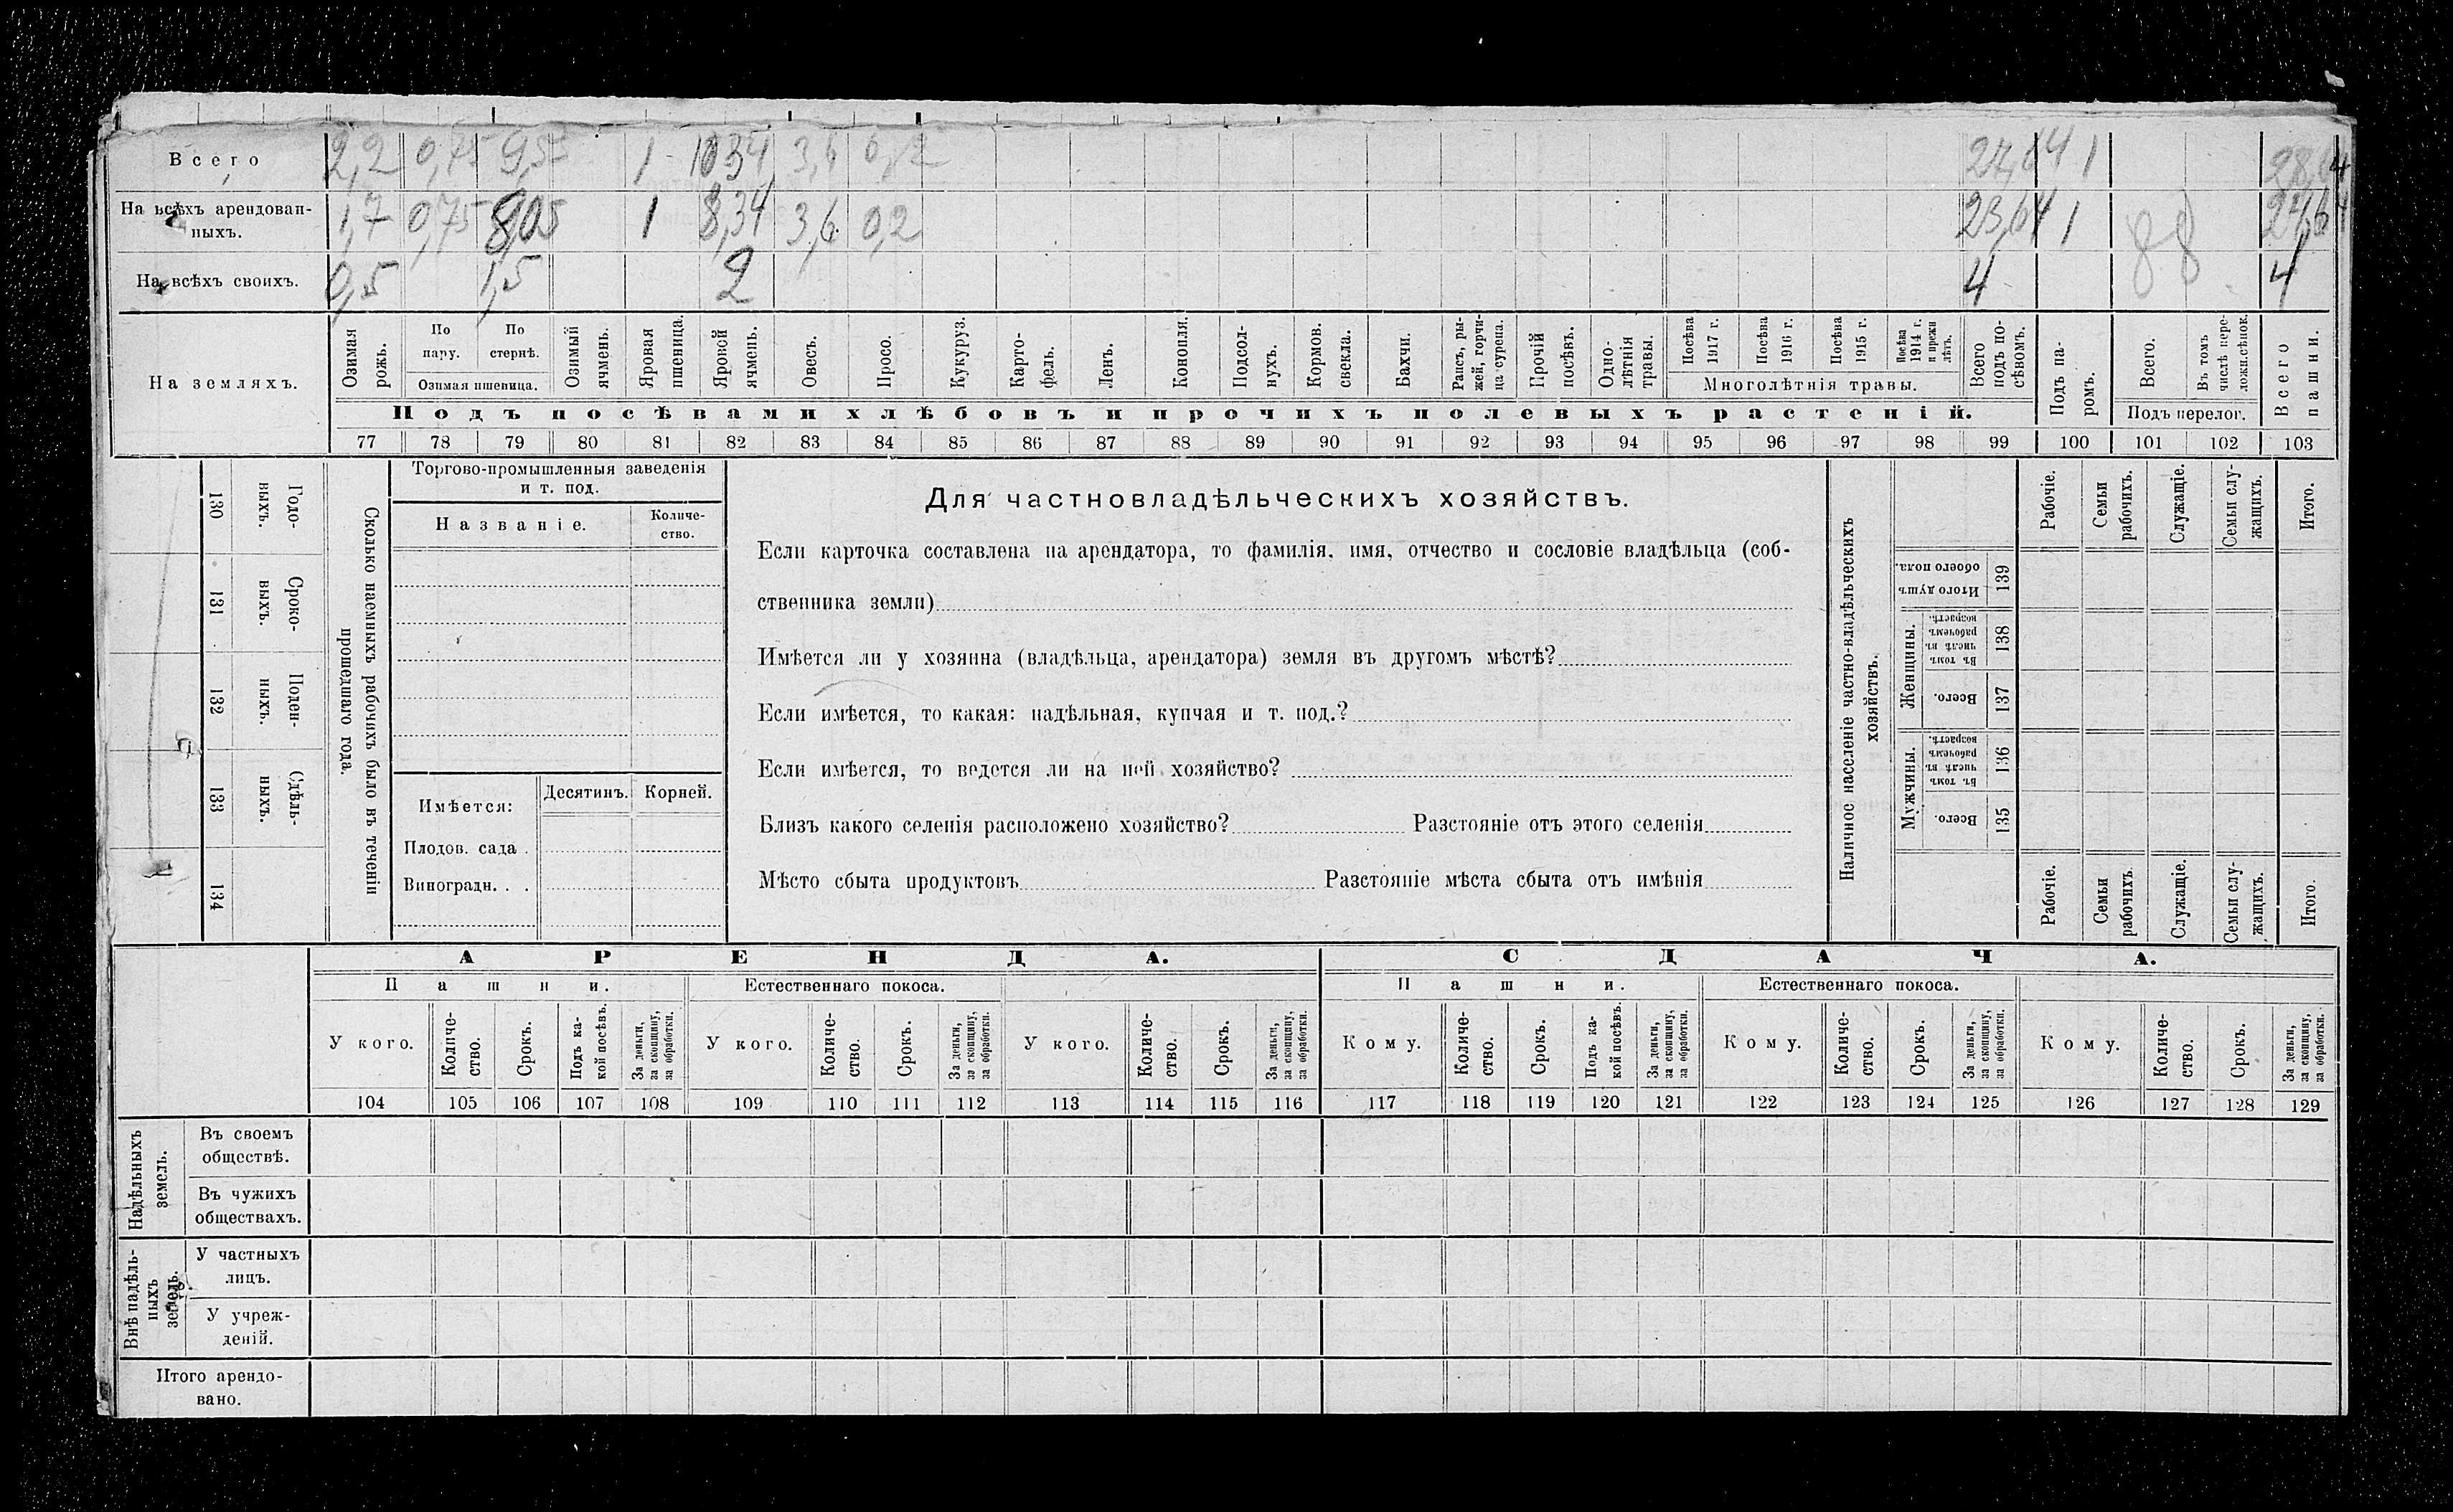 Всего 2,2 0,75 9,55 1 10 34 3,6 0,2 27,64 1 28,64
На всѣхъ арендован-
ныхъ. 1,7 0,75 8,05 1 8,34 3,6 0,2 23,64 1 88 24,64
На всѣхъ своихъ. 0,5 1,5 2 4 4
На земляхъ.
Озимая рожь.
По пару.
По стернѣ.
Озимая пшеница.
Озимый ячмень.
Яровая пшеница.
Яровой ячмень.
Овесъ.
Просо.
Кукуруз.
Карто-
фель.
Ленъ.
Конопля.
Подсол-
нухъ.
Кормов.
свекла.
Бахчи.
Рапсъ, ры-
жей, горчи-
ца сурепа.
Прочій
посѣвъ.
Одно-
лѣтнія
травы.
Посѣва 1917 г.
Посѣва 1916 г.
Посѣва 1915 г.
Посѣва 1914 г. и прежн лѣтъ.
Многолѣтнія травы.
Всего
подъ по-
сѣвомъ.
Подъ па-
ромъ.
Всего.
Въ томъ
числѣ пере-
ложн.сѣнок.
Подъ перелог.
Всего пашни.
Подъ посѣвами хлѣбовъ и прочихъ полевыхъ растеній.
77 78 79 80 81 82 83 84 85 86 87 88 89 90 91 92 93 94 95 96 97 98 99 100 101 102 103
130 Годо-
ныхъ.
131 Сроко-
выхъ.
132 Поден-
ныхъ.
133 Сдѣль-
ныхъ.
134
Сколько наемныхъ рабочихъ было въ теченіи
прошедшаго года.
Торгово-промышленныя заведенія
и т. под.
Названіе.
Количе-
ство.
Имѣется:
Десятинъ. Корней.
Плодов. сада .
Виноградн. . .
Для частновладѣльческихъ хозяйствъ.
Если карточка составлена на арендатора, то фамилія, имя, отчество и сословіе владѣльца (соб-
ственника земли)
Имѣется ли у хозяина (владѣльца, арендатора) земля въ другомъ мѣстѣ?
Если имѣется, то какая: надѣльная, купчая и т. под.?
Если имѣется, то ведется ли на ней хозяйство?
Близъ какого селенія расположено хозяйство? Разстояніе отъ этого селенія
Мѣсто сбыта продуктовъ Разстояніе мѣста сбыта отъ имѣнія
Наличное населеніе частно-владѣльческихъ
хозяйствъ.
Рабочіе.
Семьи
рабочихъ.
Служащіе.
Семьи слу-
жащихъ.
Итого.
Итого душъ
обоего пола.
139
Женщины.
Въ томъ
числѣ въ
рабочемъ
возрастѣ.
138
Всего.
137
Мужчины.
Въ томъ
числѣ въ
рабочемъ
возрастѣ.
136
Всего.
135
Рабочіе.
Семьи
рабочихъ.
Служащіе.
Семьи слу-
жащихъ.
Итого.
АРЕНДА. СДАЧА.
Пашни. Естественнаго покоса. Пашни. Естественнаго покоса.
У кого.
Количе-
ство.
Срокъ.
Подъ ка-
кой посѣвъ.
За деньги,
за скопщину,
за обработки.
У кого.
Количе-
ство.
Срокъ.
За деньги,
за скопщину,
за обработки.
У кого.
Количе-
ство.
Срокъ.
За деньги,
за скопщину,
за обработки.
Кому.
Количе-
ство.
Срокъ.
Подъ ка-
кой посѣвъ.
За деньги,
за скопщину,
за обработки.
Кому.
Количе-
ство.
Срокъ.
За деньги,
за скопщину,
за обработки.
Кому.
Количе-
ство.
Срокъ.
За деньги,
за скопщину,
за обработки.
104 105 106 107 108 109 110 111 112 113 114 115 116 117 118 119 120 121 122 123 124 125 126 127 128 129
Надѣльныхъ
земель.
Въ своемъ
обществѣ.
Въ чужихъ
обществахъ.
Внѣ надѣль-
ныхъ
земель.
У частныхъ
лицъ.
У учреж-
деній.
Итого арендо-
вано.